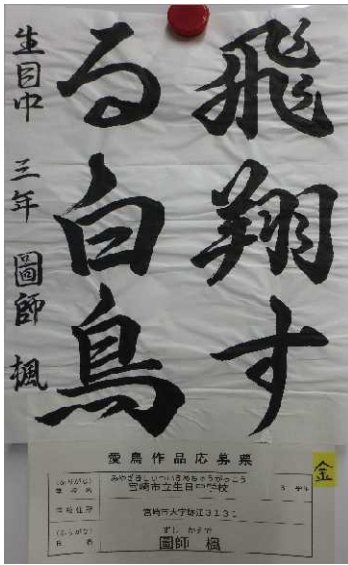 飛翔す
る白鳥
生目中 三年 圖師 楓
愛鳥作品応募票
金
みやざきしりついきめちゅうがっこう
学校名 宮崎市立生目中学校 3 学年
学校住所 宮崎市大字跡江3131
ずし かえで
氏名 圖師 楓